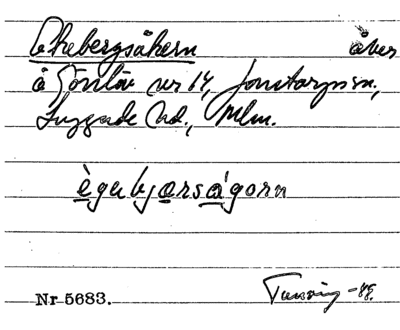 Ekebergsåkern åker
å Sönlöv nr 14, Jonstorps sn.,
Luggude hd., Mlm.
ègebjærsågorn
Nr 5683. -48.